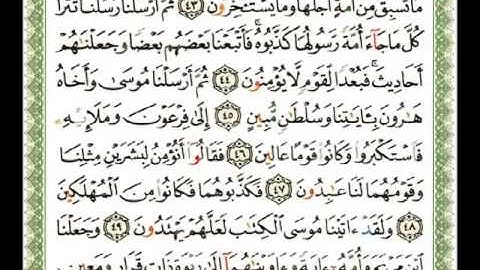 مَا تَسْبِقُ مِنْ أُمَّةٍ أَجَلَهَا وَمَا يَسْتَـْٔخِرُونَ ﴿٤٣﴾ ثُمَّ أَرْسَلْنَا رُسُلَنَا تَتْرَا
كُلَّ مَا جَآءَ أُمَّةً رَّسُولُهَا كَذَّبُوهُ ۚ فَأَتْبَعْنَا بَعْضَهُم بَعْضًا وَجَعَلْنَٰهُمْ
أَحَادِيثَ ۚ فَبُعْدًا لِّقَوْمٍ لَّا يُؤْمِنُونَ ﴿٤٤﴾ ثُمَّ أَرْسَلْنَا مُوسَىٰ وَأَخَاهُ
هَٰرُونَ بِـَٔايَٰتِنَا وَسُلْطَٰنٍ مُّبِينٍ ﴿٤٥﴾ إِلَىٰ فِرْعَوْنَ وَمَلَإِي۟هِۦ
فَٱسْتَكْبَرُوا۟ وَكَانُوا۟ قَوْمًا عَالِينَ ﴿٤٦﴾ فَقَالُوٓا۟ أَنُؤْمِنُ لِبَشَرَيْنِ مِثْلِنَا
وَقَوْمُهُمَا لَنَا عَٰبِدُونَ ﴿٤٧﴾ فَكَذَّبُوهُمَا فَكَانُوا۟ مِنَ ٱلْمُهْلَكِينَ
﴿٤٨﴾ وَلَقَدْ ءَاتَيْنَا مُوسَى ٱلْكِتَٰبَ لَعَلَّهُمْ يَهْتَدُونَ ﴿٤٩﴾ وَجَعَلْنَا
ٱبْنَ مَرْيَمَ وَأُمَّهُۥٓ ءَايَةً وَءَاوَيْنَٰهُمَآ إِلَىٰ رَبْوَةٍ ذَاتِ قَرَارٍ وَمَعِينٍ